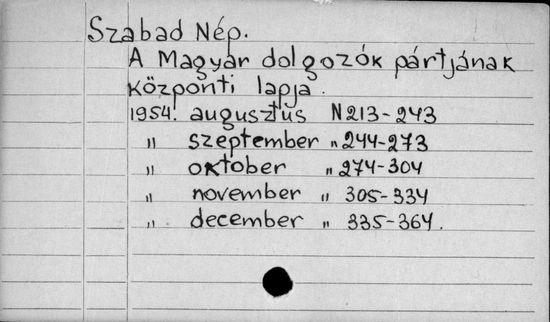 Szabad Nép.
A Magyar dolgozók pártjának
központi lapja.
1954. augusztus N 213-243
" szeptember " 244-273
" oktober " 274-304
" november " 305-334
" december " 335-364.